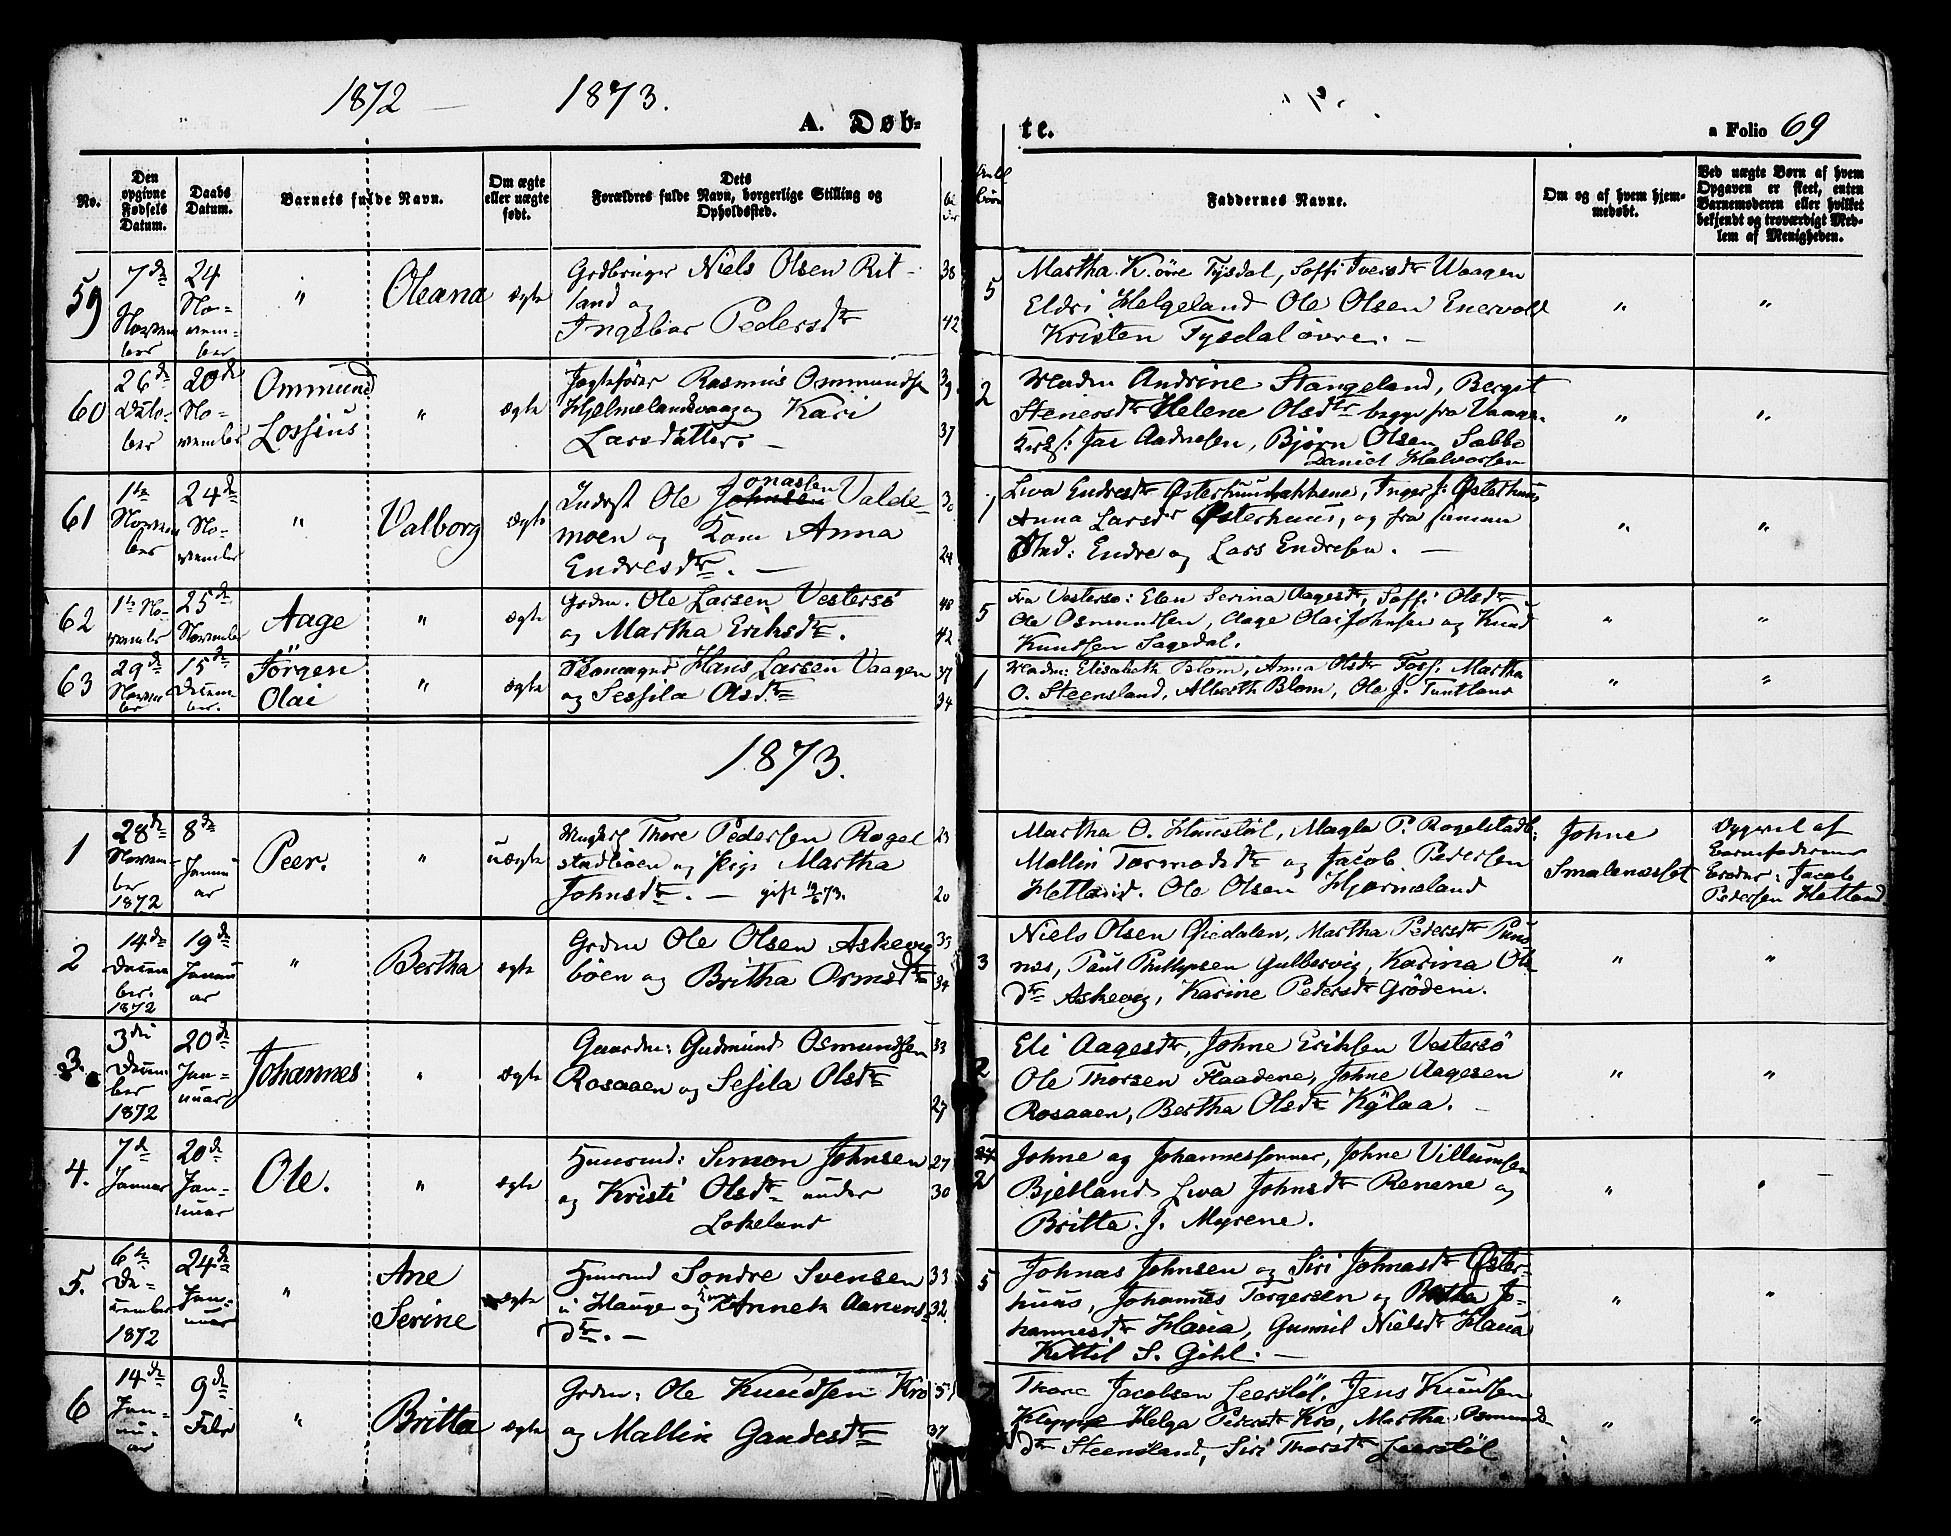 1872 — 1873.
A. Døb-
te.
a Folio 69
No.
Den opgivne Fødsels Datum.
Daabs Datum.
Barnets fulde Navn.
Om ægte eller uægte født.
Dets
Forældres fulde Navn, borgerlige Stilling og
Opholdssted.
Faddernes Navne.
Om og af hvem hjem-
medøbt.
Ved uægte Børn af hvem
Opgaven er skeet, enten
Barnemoderen eller hvilket
bekjendt og troværdigt Med-
lem af Menigheden.
59
7de November
24 November
"
Oleana
ægte
Grdbruger Niels Olsen Rit-
land og
Ingebor Pedersdtr
38
42
5
Martha K. øvre Tysdal, Soffi Iversdtr Waagen
Eldri Helgeland Ole Olsen Enervold
Kristen Tysdal øvre. —
"
"
60
26de October
20de November
Ommund
Lossius
"
ægte
Jagtefører Rasmus Ommunds
Hjelmelandsvaag og Kari
Larsdatter. —
39
37
2
Madm Andrine Stangeland, Bergit
Helene Olsdtr begge fra Vaage
Aadnesen, Bjørn Olsen Sæbbø
Daniel Halvorsen
"
"
61
1ste November
24de November
"
Valborg
ægte
Inderst Ole Johnsen Jonassen Valde-
moen og Kone Anna
Endresdtr. —
30
24
1
Liva Endresdtr Østerhuusbakkene, Inger J. Østerhuus
Anna Larsdtr Østerhuus, og fra samme
Sted: Endre og Lars Endresen. —
"
"
62
1ste November
25de November
Aage
"
ægte
Grdm. Ole Larsen Vestersø
og Martha Eriksdtr.
48
42
5
Fra Vestersø: Elen Serina Aagesdtr, Soffi Olsdtr
Ole Osmundsen, Aage Olai Johnsen og Knud
Knudsen Sagedal.
"
"
63
29de November
15de December.
Jörgen
Olai
"
ægte
Hans Larsen Vaagen
og Sessila Olsdtr
37
34
1
Madm: Elisabeth Blom, Anna Olsdtr Foss: Martha
O. Steensland, Albert Blom, Ole J. Tuntland
"
"
1873.
1
28de November 1872
8de Januar
Peer.
"
uægte
Ungkarl Thore Pedersen Rogel
stadbøen og Pige Martha
Johnsdtr. — gift
23
20
Martha O. Magla P. Rogelstadb:
Mallin Tormodsdtr og Jacob Pedersen
Hetland. Ole Olsen Hjørneland
Johne
Smalenæsset
Opgivet af
Barnefaderens
Broder: Jacob
Pedersen Hetland
2
14de December. 1872
19de Januar
"
Bertha
ægte
Grdm Ole Olsen Askevig
böen og Britha Ormsdtr
33
34
3
Niels Olsen Martha Pedersdtr Puns
næs, Paul Phillipsen Gulbervig, Karina Ols
dtr Askevig, Karine Pedersdtr Grödem.
"
"
3.
3die December 1872
20de Januar
Johannes
"
ægte
Gaardm: Gudmund Osmundsen
Rosaaen og Sesila Olsdtr
33
27
2
Eli Aagesdtr, Johne Eriksen Vestersö
Ole Thorsen Flaadene, Johne Aagesen
Rosaaen, Bertha Olsdtr Kylaa. —
"
"
4.
7de Januar
20de Januar
Ole.
"
ægte
Huusmd: Simon Johnsen
og Kristi Olsdtr under
Lokeland
27
30
2
Johne og Johannes Johne Villumsen
Bjelland Liva Johnsdtr Renene og
Britta. J. Myrene.
"
"
5.
6te December 1872
24de Januar
"
Ane
Serine
ægte
Huusmd Sondre Svensen
u. Hauge og Anneth Aanens
dtr. —
33
32
5
Johnas Johnsen og Siri Johnasdtr Øster-
huus, Johannes Torgersen og Bertha Jo-
hannesdtr Hauia, Gunnil Nielsdtr Hauia
Kettil S. Gihl. —
"
"
6
14de Januar
9de Febr
"
Britta
ægte
Grdm: Ole Knudsen Kro
og Mallin Gaudesdtr
51
37
7
Thore Jacobsen Leerstöl, Jens Knudsen
Kleppe Helga Pedersdtr Kro, Martha Osmunds
dtr Steensland, Siri Thorsdtr Leerstöl
"
"